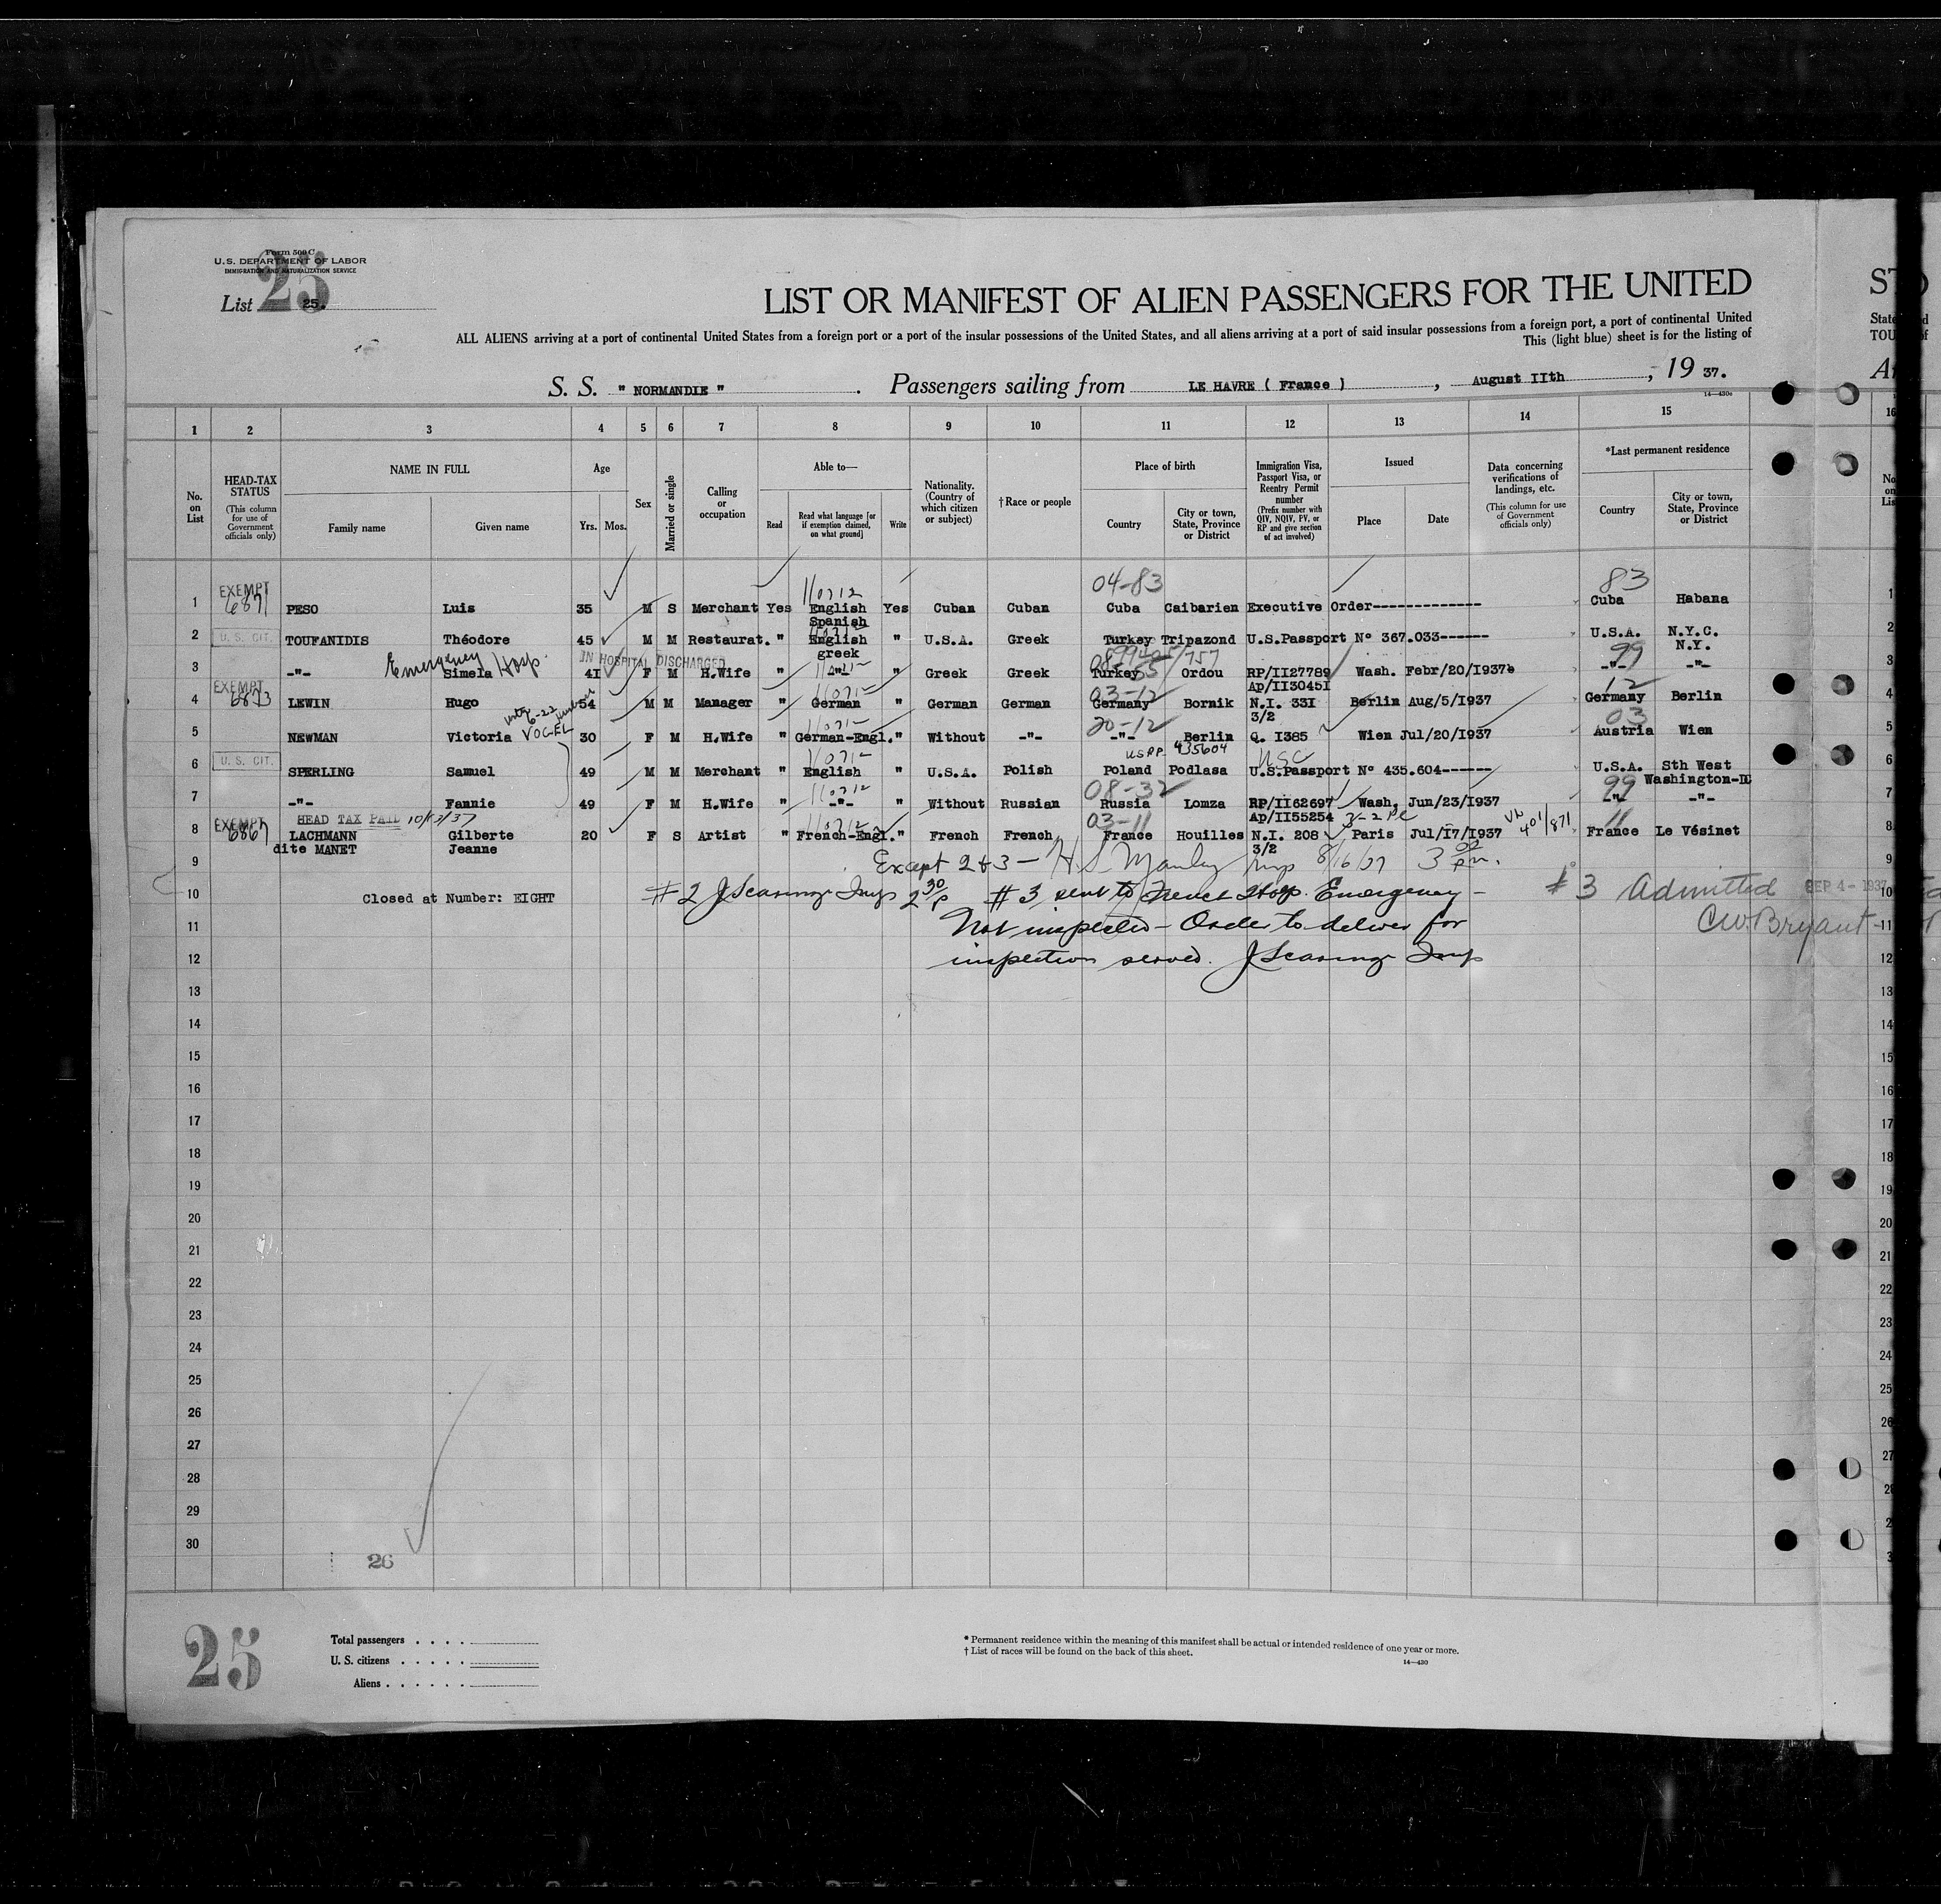 Form 500 C
U. S. DEPARTMENT OF LABOR
IMMIGRATION AND NATURALIZATION SERVICE
25
List 25.
LIST OR MANIFEST OF ALIEN PASSENGERS FOR THE UNITED
ST
ALL ALIENS arriving at a port of continental United States from a foreign port or a port of the insular possessions of the United States, and all aliens arriving at a port of said insular possessions from a foreign port, a port of continental United
This (light blue) sheet is for the listing of
S. S. " NORMANDIE " . Passengers sailing from LE HAVRE ( France ) , August IIth , 19 37.
14—430c
1 2 3 4 5 6 7 8 9 10 11 12 13 14 15 16
No. on List
HEAD-TAX STATUS
(This column for use of Government officials only)
NAME IN FULL
Family name Given name
Age
Yrs. Mos.
Sex
Married or single
Calling or occupation
Able to—
Read
Read what language [or if exemption claimed, on what ground]
Write
Nationality. (Country of which citizen or subject)
† Race or people
Place of birth
Country
City or town, State, Province or District
Immigration Visa, Passport Visa, or Reentry Permit number
(Prefix number with QIV, NQIV, PV, or RP and give section of act involved)
Issued
Place Date
Data concerning verifications of landings, etc.
(This column for use of Government officials only)
*Last permanent residence
Country
City or town, State, Province or District
04-83 83
EXEMPT 6871
1 PESO Luis 35 M S Merchant Yes English Yes Cuban Cuban Cuba Caibarien Executive Order------------- Cuba Habana
Spanish
2 U. S. CIT. TOUFANIDIS Théodore 45 M M Restaurat. " English " U.S.A. Greek Turkey Tripazond U.S.Passport N° 367.033------ U.S.A. N.Y.C.
greek N.Y.
Emergency Hosp. IN HOSPITAL DISCHARGED 99
3 -"- Simela 4I F M H.Wife " -"- " Greek Greek Turkey Ordou RP/II27789 Wash. Febr/20/I937 -"- -"-
Ap/II3045I
EXEMPT 03-12 12
4 LEWIN Hugo 54 M M Manager " German " German German Germany Bornik N.I. 33I Berlin Aug/5/I937 Germany Berlin
3/2
VOGEL 20-12 03
5 NEWMAN Victoria 30 F M H.Wife " German-Engl." Without -"- -"- Berlin Q. I385 Wien Jul/20/I937 Austria Wien
USPP 435604 USC
6 U. S. CIT. SPERLING Samuel 49 M M Merchant " English " U.S.A. Polish Poland Podlasa U.S.Passport N° 435.604------ U.S.A. Sth West
Washington-DC
08-32 99
7 -"- Fannie 49 F M H.Wife " -"- " Without Russian Russia Lomza RP/II62697 Wash, Jun/23/I937 -"- -"-
HEAD TAX PAID 10/13/37 03-11 Ap/II55254 3-2 11
EXEMPT 6867
8 LACHMANN Gilberte 20 F S Artist " French-Engl." French French France Houilles N.I. 208 Paris Jul/I7/I937 401/871 France Le Vésinet
dite MANET Jeanne 3/2
9 Except 2&3 — H.S. Manley Insp 8/16/37 3 00 pm.
10 Closed at Number: EIGHT #2 J Scaringi Insp 2 30 P #3 sent to French Hosp. Emergency — #3 Admitted SEP 4 - 1937
11 Not inspected — Order to deliver for C.W. Bryant
12 inspection served. J Scaringi Insp
13
14
15
16
17
18
19
20
21
22
23
24
25
26
27
28
29
30
26
25
Total passengers . . . .
U. S. citizens . . . . .
Aliens . . . . . .
* Permanent residence within the meaning of this manifest shall be actual or intended residence of one year or more.
† List of races will be found on the back of this sheet.
14—430